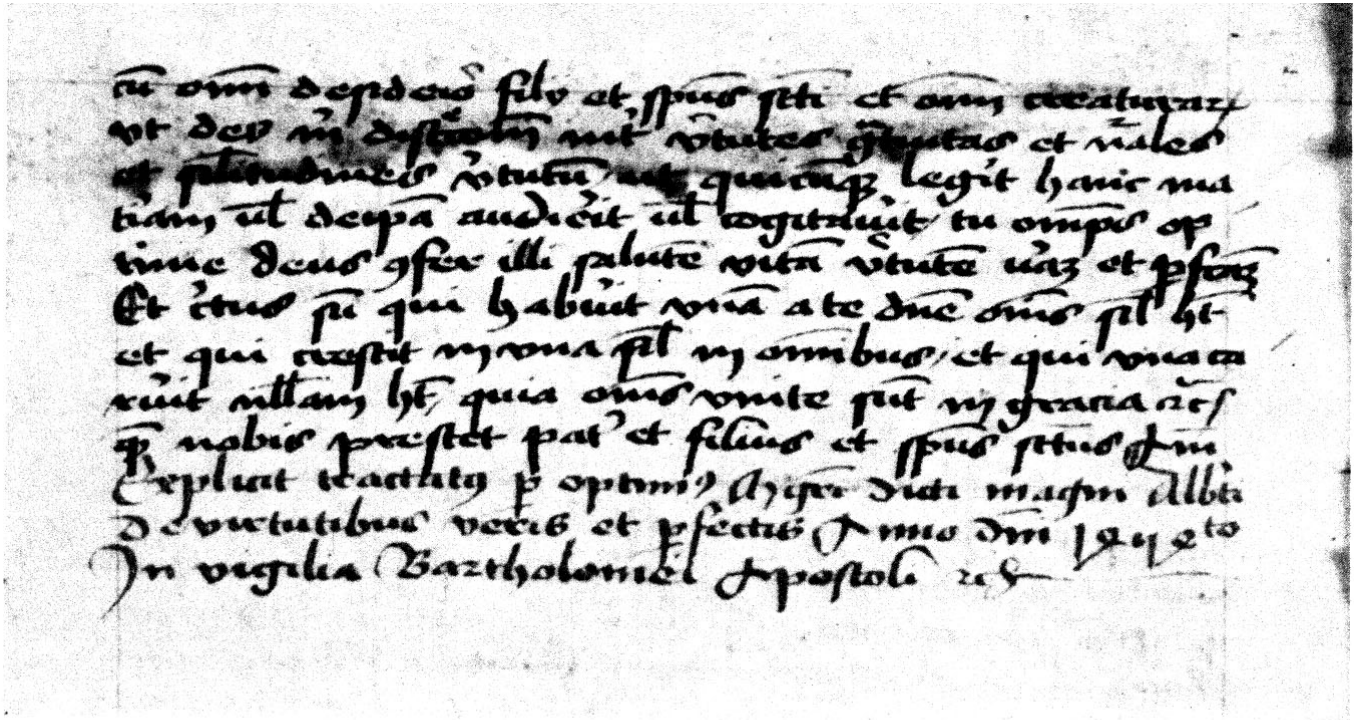 cū om̄i desideriꝰ filiꝰ et spūs scti et om̄i creaturaꝝ
vt det ... int̓ v̓tutes g̃tuitas et n̄ales
et sil̄itudineis v̓tutū ut quicūqꝫ leg̓it hanc ma
t̓iam ul̄ de ip̄a audi̓it ul̄ cogitau̓it tu omp̄s op
time deus ꝯfer illi salutē vitā v̓tutē u̓aꝫ et ꝑfcāꝫ
Et c̓tus sū qui habu̓it vnā a te dn̄e om̄s sil̄ ht̄
et qui crescit in vna sil̄ in om̄ibus et qui vna ca
ru̓it nll̄am ht̄ quia om̄s vnite sūt in gracia ꝛc̄
qḏ nobis prestet pat̓ et filius et spūs sctūs Am̄
Explicit tractatꝰ ꝑ optimū Mgr̄m dicti magni Alb̓ti
De virtutibus veris et ꝑfectis Anno dm̄i 1424to
In vigilia Bartholomei Apostoli ꝛc